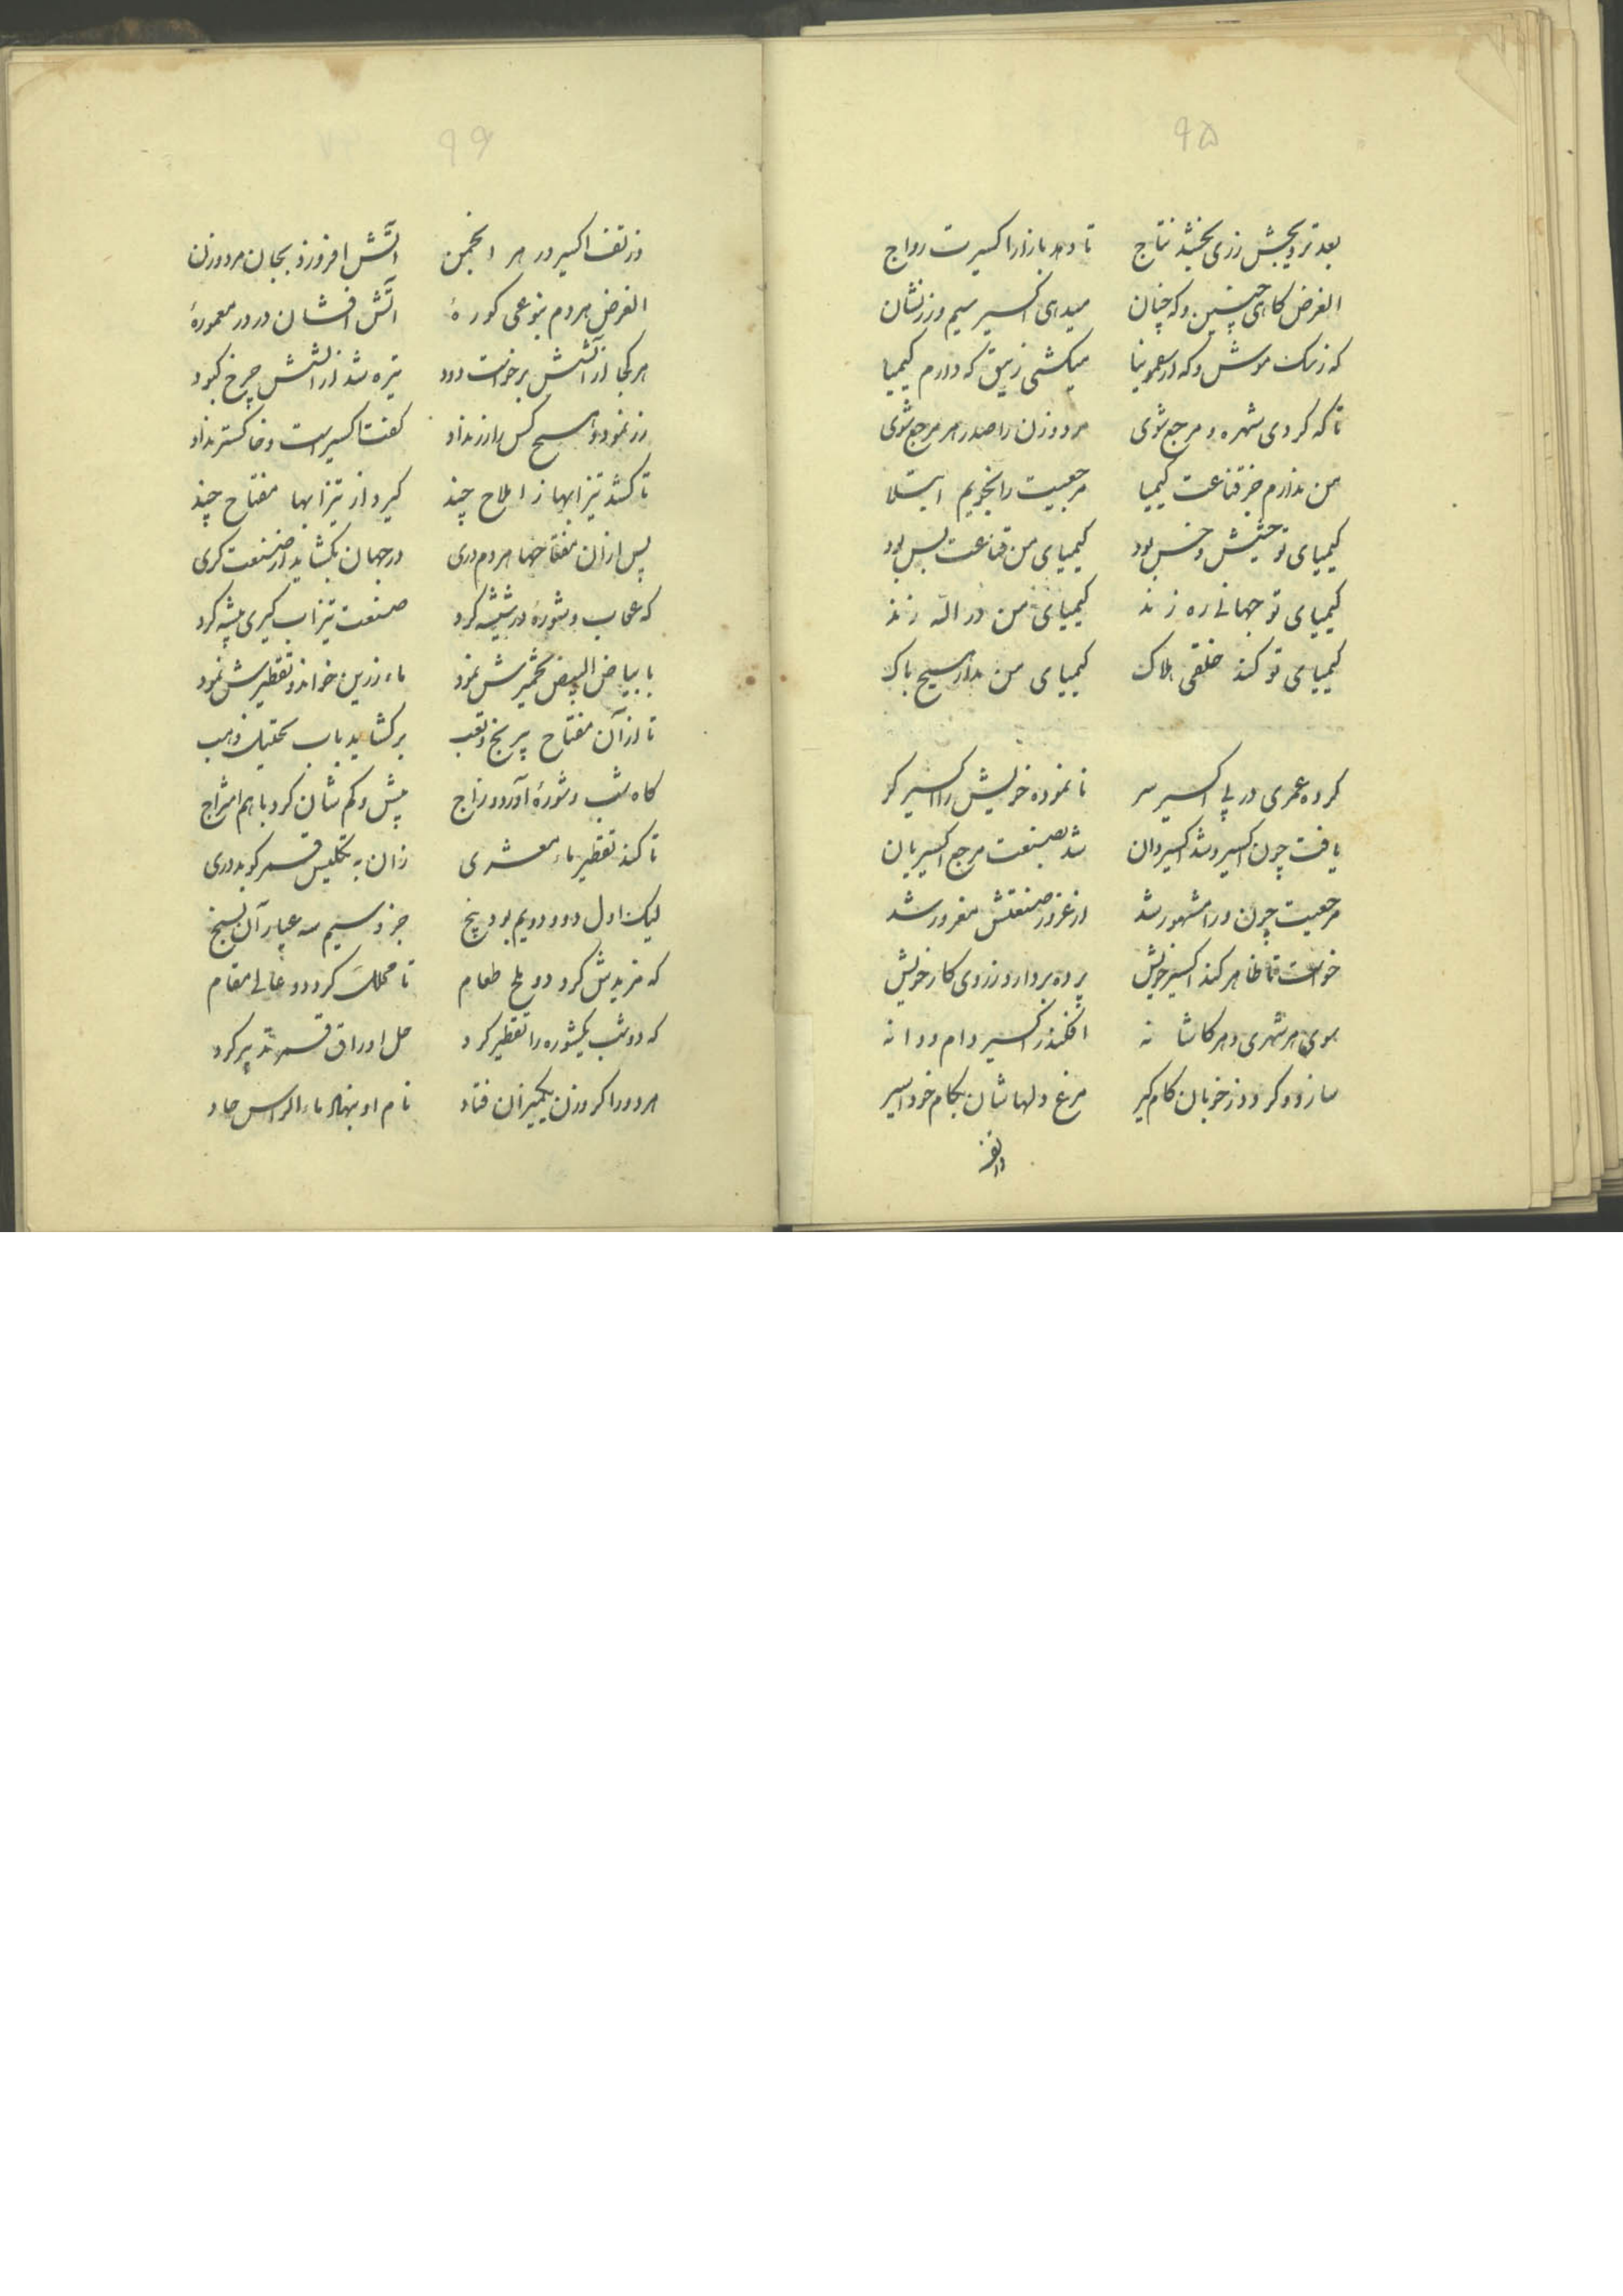 ۹۵
بعد ترویجش زری بخشد نتاج تا دهد بازار اکسیرت رواج
الغرض کاهی چنین و که چنان میدهی اکسیر سیم و زر نشان
که زمک موش و که از سمونیا میکشی زیبق که دارم کیمیا
تا که کردی شهره و مرجع شوی مرد و زن را صدر هر مرجع شوی
من ندارم جز قناعت کیمیا مرجعیت را نجویم ابتلا
کیمیای تو حشیش و خس بود کیمیای من قناعت بس بود
کیمیای تو جهانی ره زند کیمیای من در الله زند
کیمیای تو کند خلقی هلاک کیمیای من ندارد هیچ باک
کرده عمری در پی اکسیر سر نا نموده خویش را اکسیر کر
یافت چون اکسیر و شد اکسیردان شد بصنعت مرجع اکسیریان
مرجعیت چون ورا مشهور شد از غرور صنعتش مغرور شد
خواست تا ظاهر کند اکسیر خویش پرده بردارد ز روی کار خویش
سوی هر شهری و هر کاشانه افکند ز اکسیر دام و دانه
سازد و کردد ز خوبان کام کیر مرغ دلهاشان بکام خود اسیر
۹۶
وز تف اکسیر در هر انجمن آتش افروزد بجان مرد و زن
الغرض هر دم بنوعی کورهٔ آتش افشان در در معمورهٔ
هر کجا از آتشش برخواست دود تیره شد از آتشش چرخ کبود
زر نمود و هیچ کس را زر نداد کفت اکسیر است و خاکستر نداد
تا کشد تیزابها ز املاح چند کیرد از تیزابها مفتاح چند
پس از آن مفتاحها هر دم دری در جهان بکشاید از صنعت کری
که عقاب و شورهٔ در شیشه کرد صنعت تیزاب کیری پیشه کرد
با بیاض البیض تخمیرش نمود ماء زرین خواند و تقطیرش نمود
تا از آن مفتاح پر رنج و تعب بر کشاید باب تحلیل ذهب
کاه شب و شورهٔ آورد و زاج بیش و کم شان کرد با هم امتزاج
تا کند تقطیر ماء معشری زان به تکلیس قمر کوبد دری
لیک اول دو و دویم بود پنج جزو سیم سه عیار آن بسنج
که مزیدش کرد دو ملح طعام تا مملک کردد و عالی مقام
که دو شب یکشوره را تقطیر کرد حل اوراق قمر تدبیر کرد
هر دو را کر وزن یکمیزان فتاد نام او بنهاد ماء الراس حاد